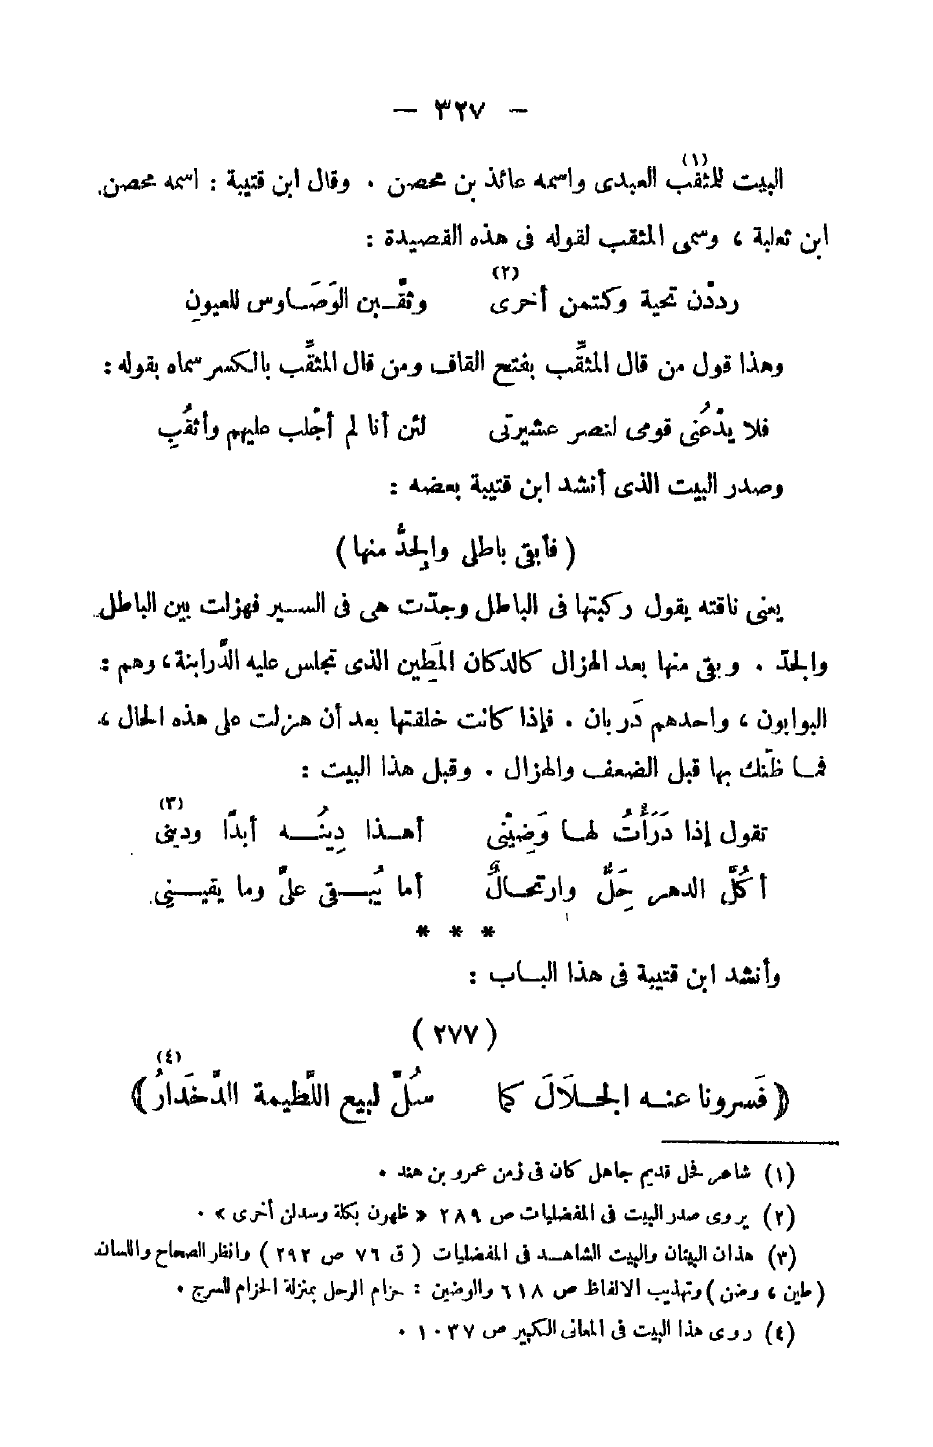 — ٣٢٧ —
البيت للمثقب(١) العبدى واسمه عائذ بن محصن . وقال ابن قتيبة : اسمه محصن
ابن ثعلبة ، وسمى المثقب لقوله فى هذه القصيدة :
رددْن تحية وكتمن أخرى(٢) وثقَّبن الوَصَاوس للعيونِ
وهذا قول من قال المثقَّب بفتح القاف ومن قال المثقِّب بالكسر سماه بقوله :
فلا يدْعُنى قومى لنصر عشيرتى لئن أنا لم أجْلب عليهم وأثقُبِ
وصدر البيت الذى أنشد ابن قتيبة بعضه :
( فأبقى باطلى والِجدُّ منها )
يعنى ناقته يقول ركبتها فى الباطل وجدّت هى فى السير فهزلت بين الباطل
والجدّ . وبقى منها بعد الهزال كالدكان المَطِين الذى تجلس عليه الدَّرابنة ، وهم :
البوابون ، واحدهم دَربان . فإذا كانت خلقتها بعد أن هزلت على هذه الحال ،
فما ظنّك بها قبل الضعف والهزال . وقبل هذا البيت :
تقول إذا دَرَأْتُ لها وَضِيْنى أهذا دِينُه أبدًا ودينى(٣)
أكُلَّ الدهر حِلٌّ وارتحالٌ أما يُبقى علىَّ وما يقينى
* * *
وأنشد ابن قتيبة فى هذا الباب :
( ٢٧٧ )
﴿ فَسرونا عنه الجلَالَ كما سُلَّ لبيع اللَّطيمة الدَّخدَارُ(٤) ﴾
(١) شاعر فحل قديم جاهل كان فى زمن عمرو بن هند .
(٢) يروى صدر البيت فى المفضليات ص ٢٨٩ « ظهرن بكلة وسدلن أخرى » .
(٣) هذان البيتان والبيت الشاهد فى المفضليات ( ق ٧٦ ص ٢٩٢ ) وانظر الصحاح واللسان
( طين ، وضن ) وتهذيب الالفاظ ص ٦١٨ والوضين : حزام الرحل بمنزلة الحزام للسرج .
(٤) روى هذا البيت فى المعانى الكبير ص ١٠٣٧ .